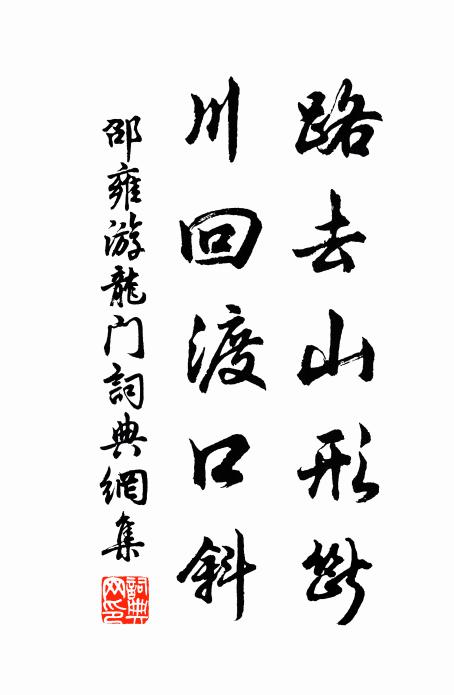 路去山形斷
川回渡口斜
邵雍游龍门詞典網集
詞典
网印